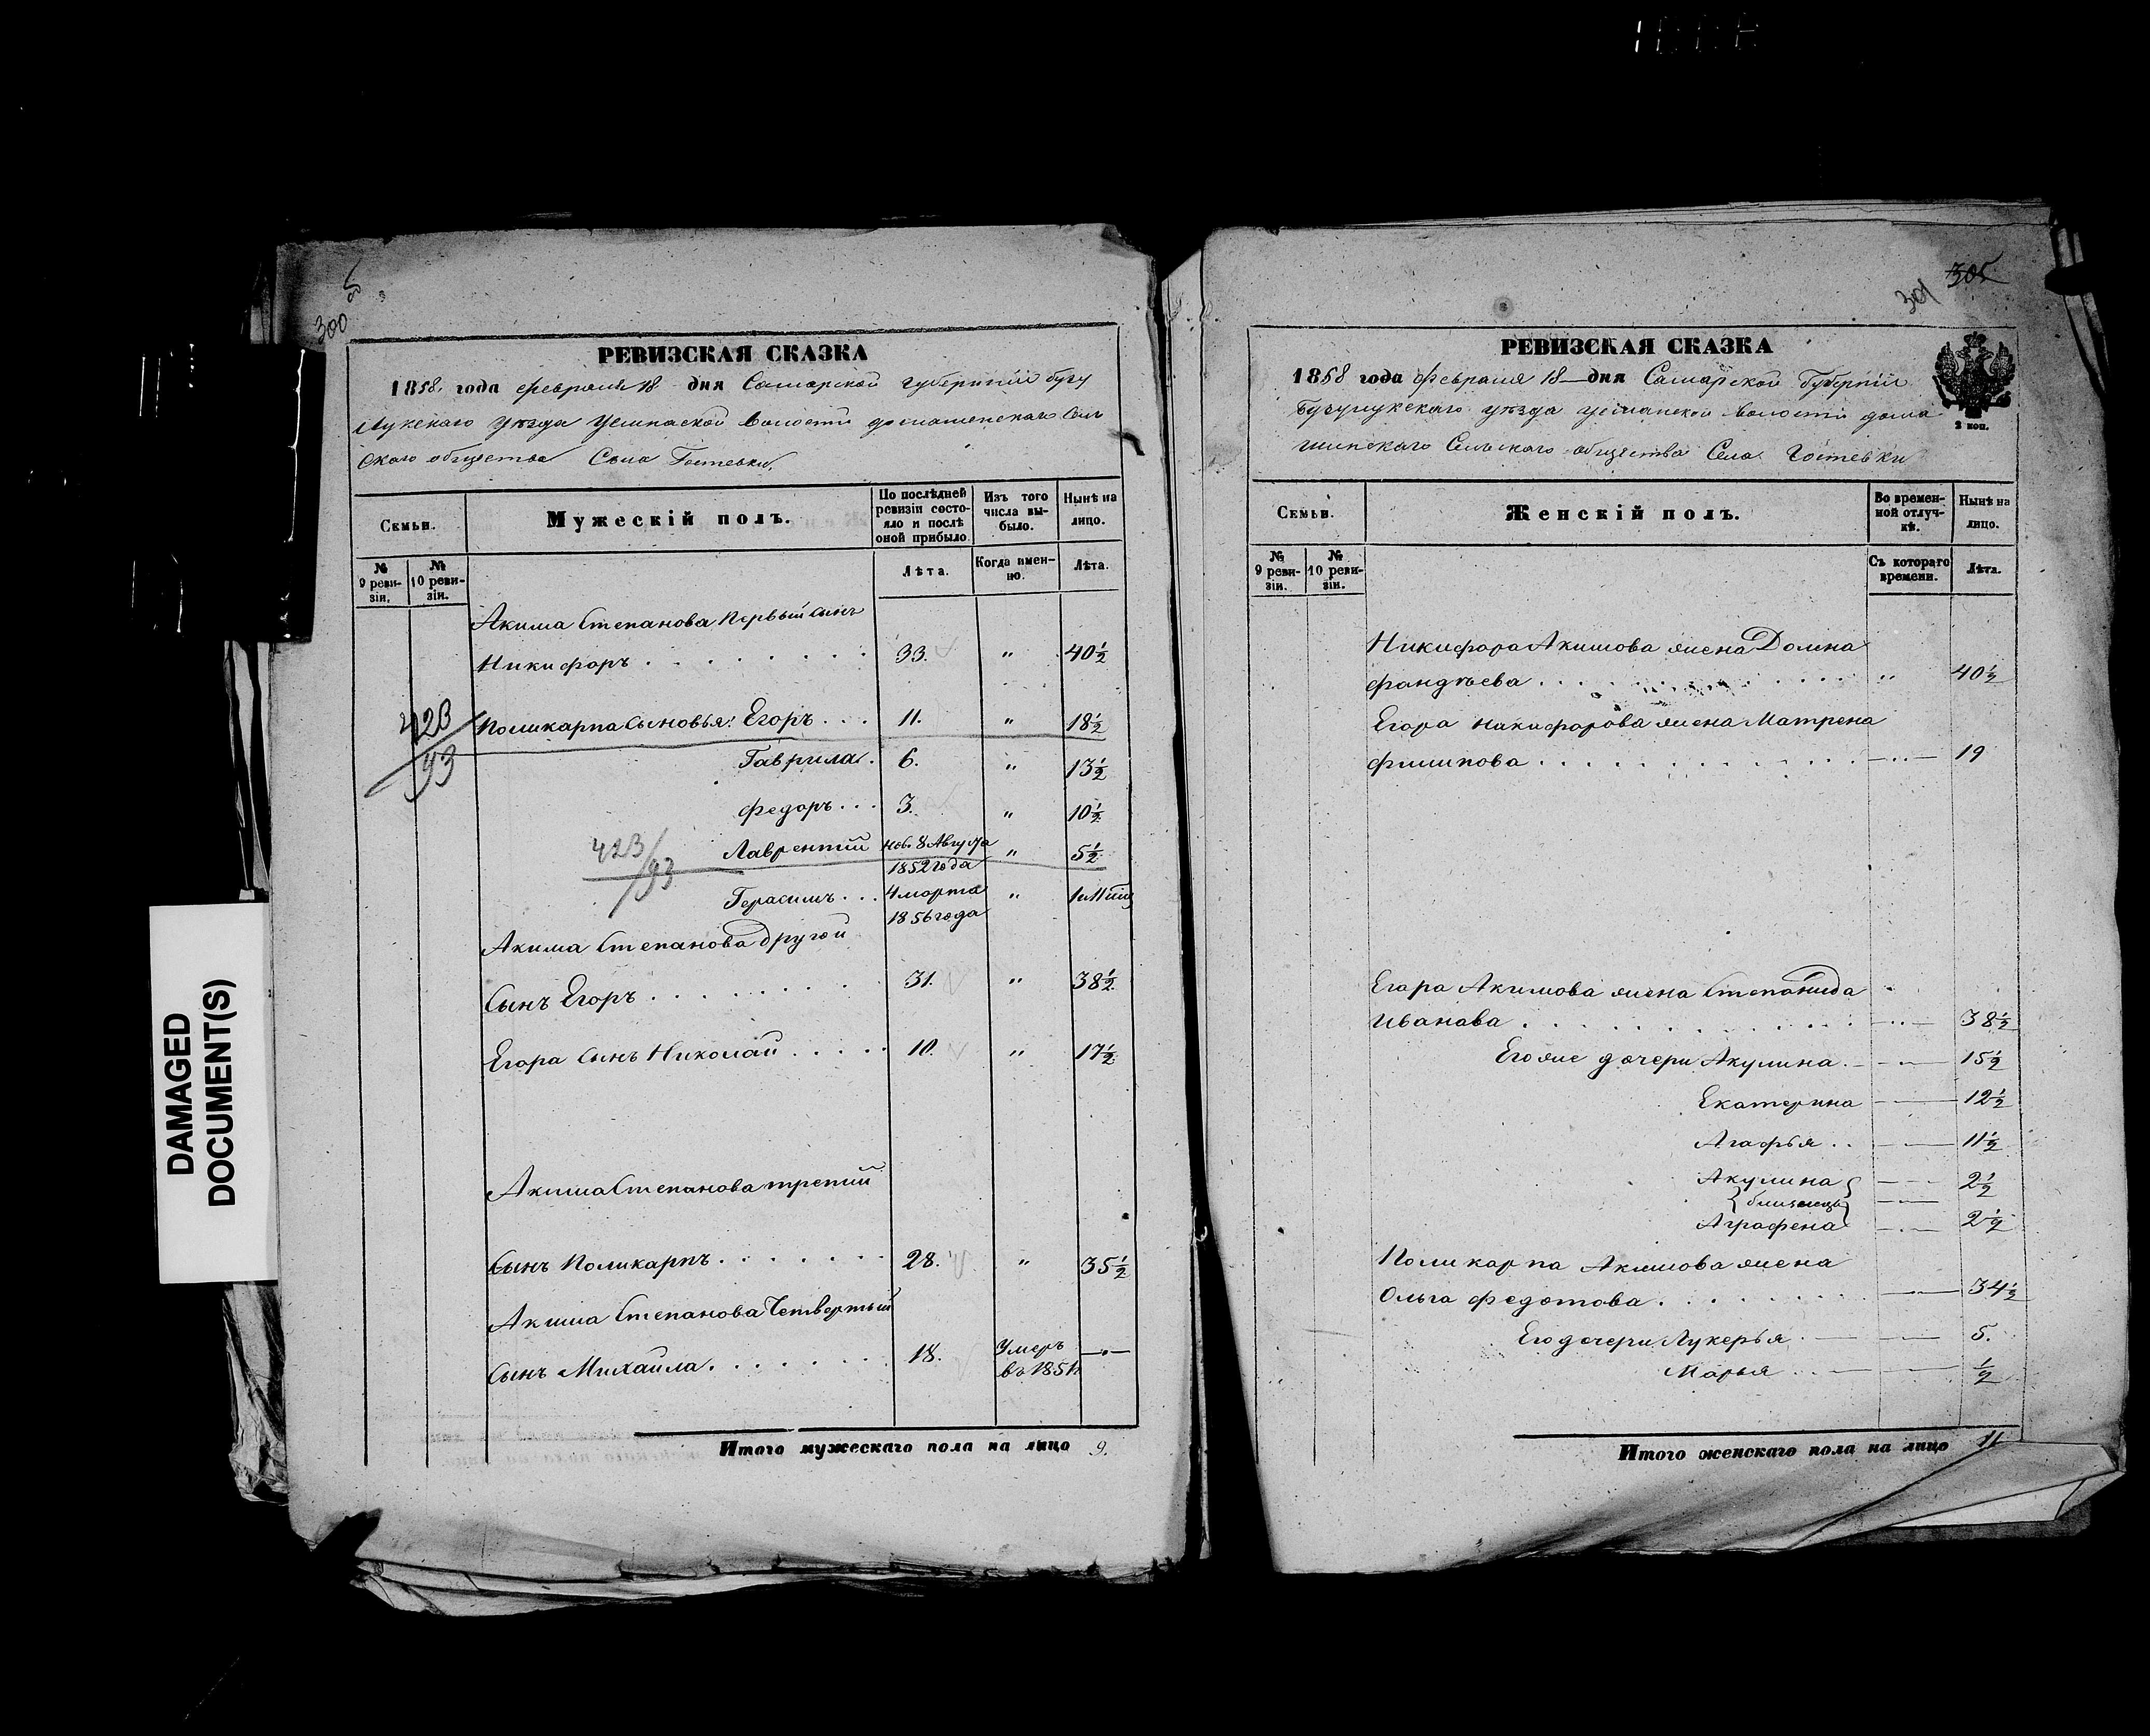 300
РЕВИЗСКАЯ СКАЗКА
1858 года февраля 18 дня Самарской губернии бугу
лукскаго уѣзда домашенскаго Сель
скаго общества Села Гостевки
Семьи.
Мужескій полъ.
По послѣдней ревизіи состояло и послѣ оной прибыло.
Изъ того числа выбыло.
Нынѣ на лицо.
№ 9 ревизіи.
№ 10 ревизіи.
Лѣта.
Когда именно.
Лѣта.
Акима Степанова первый сынъ
Никифоръ . . . . . . . . 33. " 40½
423/93
Поликарпа сыновья: Егоръ . . . 11. " 18½
Гаврила . 6. " 13½
Федоръ . . . 3. " 10½
423/93
Лаврентій нов. 8 Августа " 5½
1852 года
Герасимъ . . . 4 марта "
1856 года
Акима Степанова другой
Сынъ Егоръ . . . . . . . . 31. " 38½
Егора сынъ Николай . . . . . 10. " 17½
Акима Степанова третій
Сынъ Поликарпъ . . . . . . . 28. " 35½
Акима Степанова Четвертый
Сынъ Михайла . . . . . . . 18. Умеръ —
въ 1851
Итого мужескаго пола на лицо 9.
305
301
РЕВИЗСКАЯ СКАЗКА
1858 года Февраля 18 — дня Самарской Губерніи
Бугулукскаго уѣзда волости дома
шинскаго Сельскаго общества Села Гостевки
2 коп.
Семьи.
Женскій полъ.
Во временной отлучкѣ.
Нынѣ на лицо.
№ 9 ревизіи.
№ 10 ревизіи.
Съ котораго времени.
Лѣта.
Никифора Акимова жена Домна
фандѣева . . . . . . . . . . " 40½
Егора Никифорова жена Матрена
филипова . . . . . . . . . . — " — 19
Егара Акимова жена Степанида
Иванова . . . . . . . . . . — " — 38½
Его же дочери Акулина . — 15½
Екатерина — 12½
Агафья . . — 11½
Акулина — 2½
близнецы
Аграфена — 2½
Поликарпа Акимова жена
Ольга федотова . . . . . . . — 34½
Его дочери Лукерья . — 5.
Марья . . — ½
Итого женскаго пола на лицо 11
DAMAGED
DOCUMENT(S)